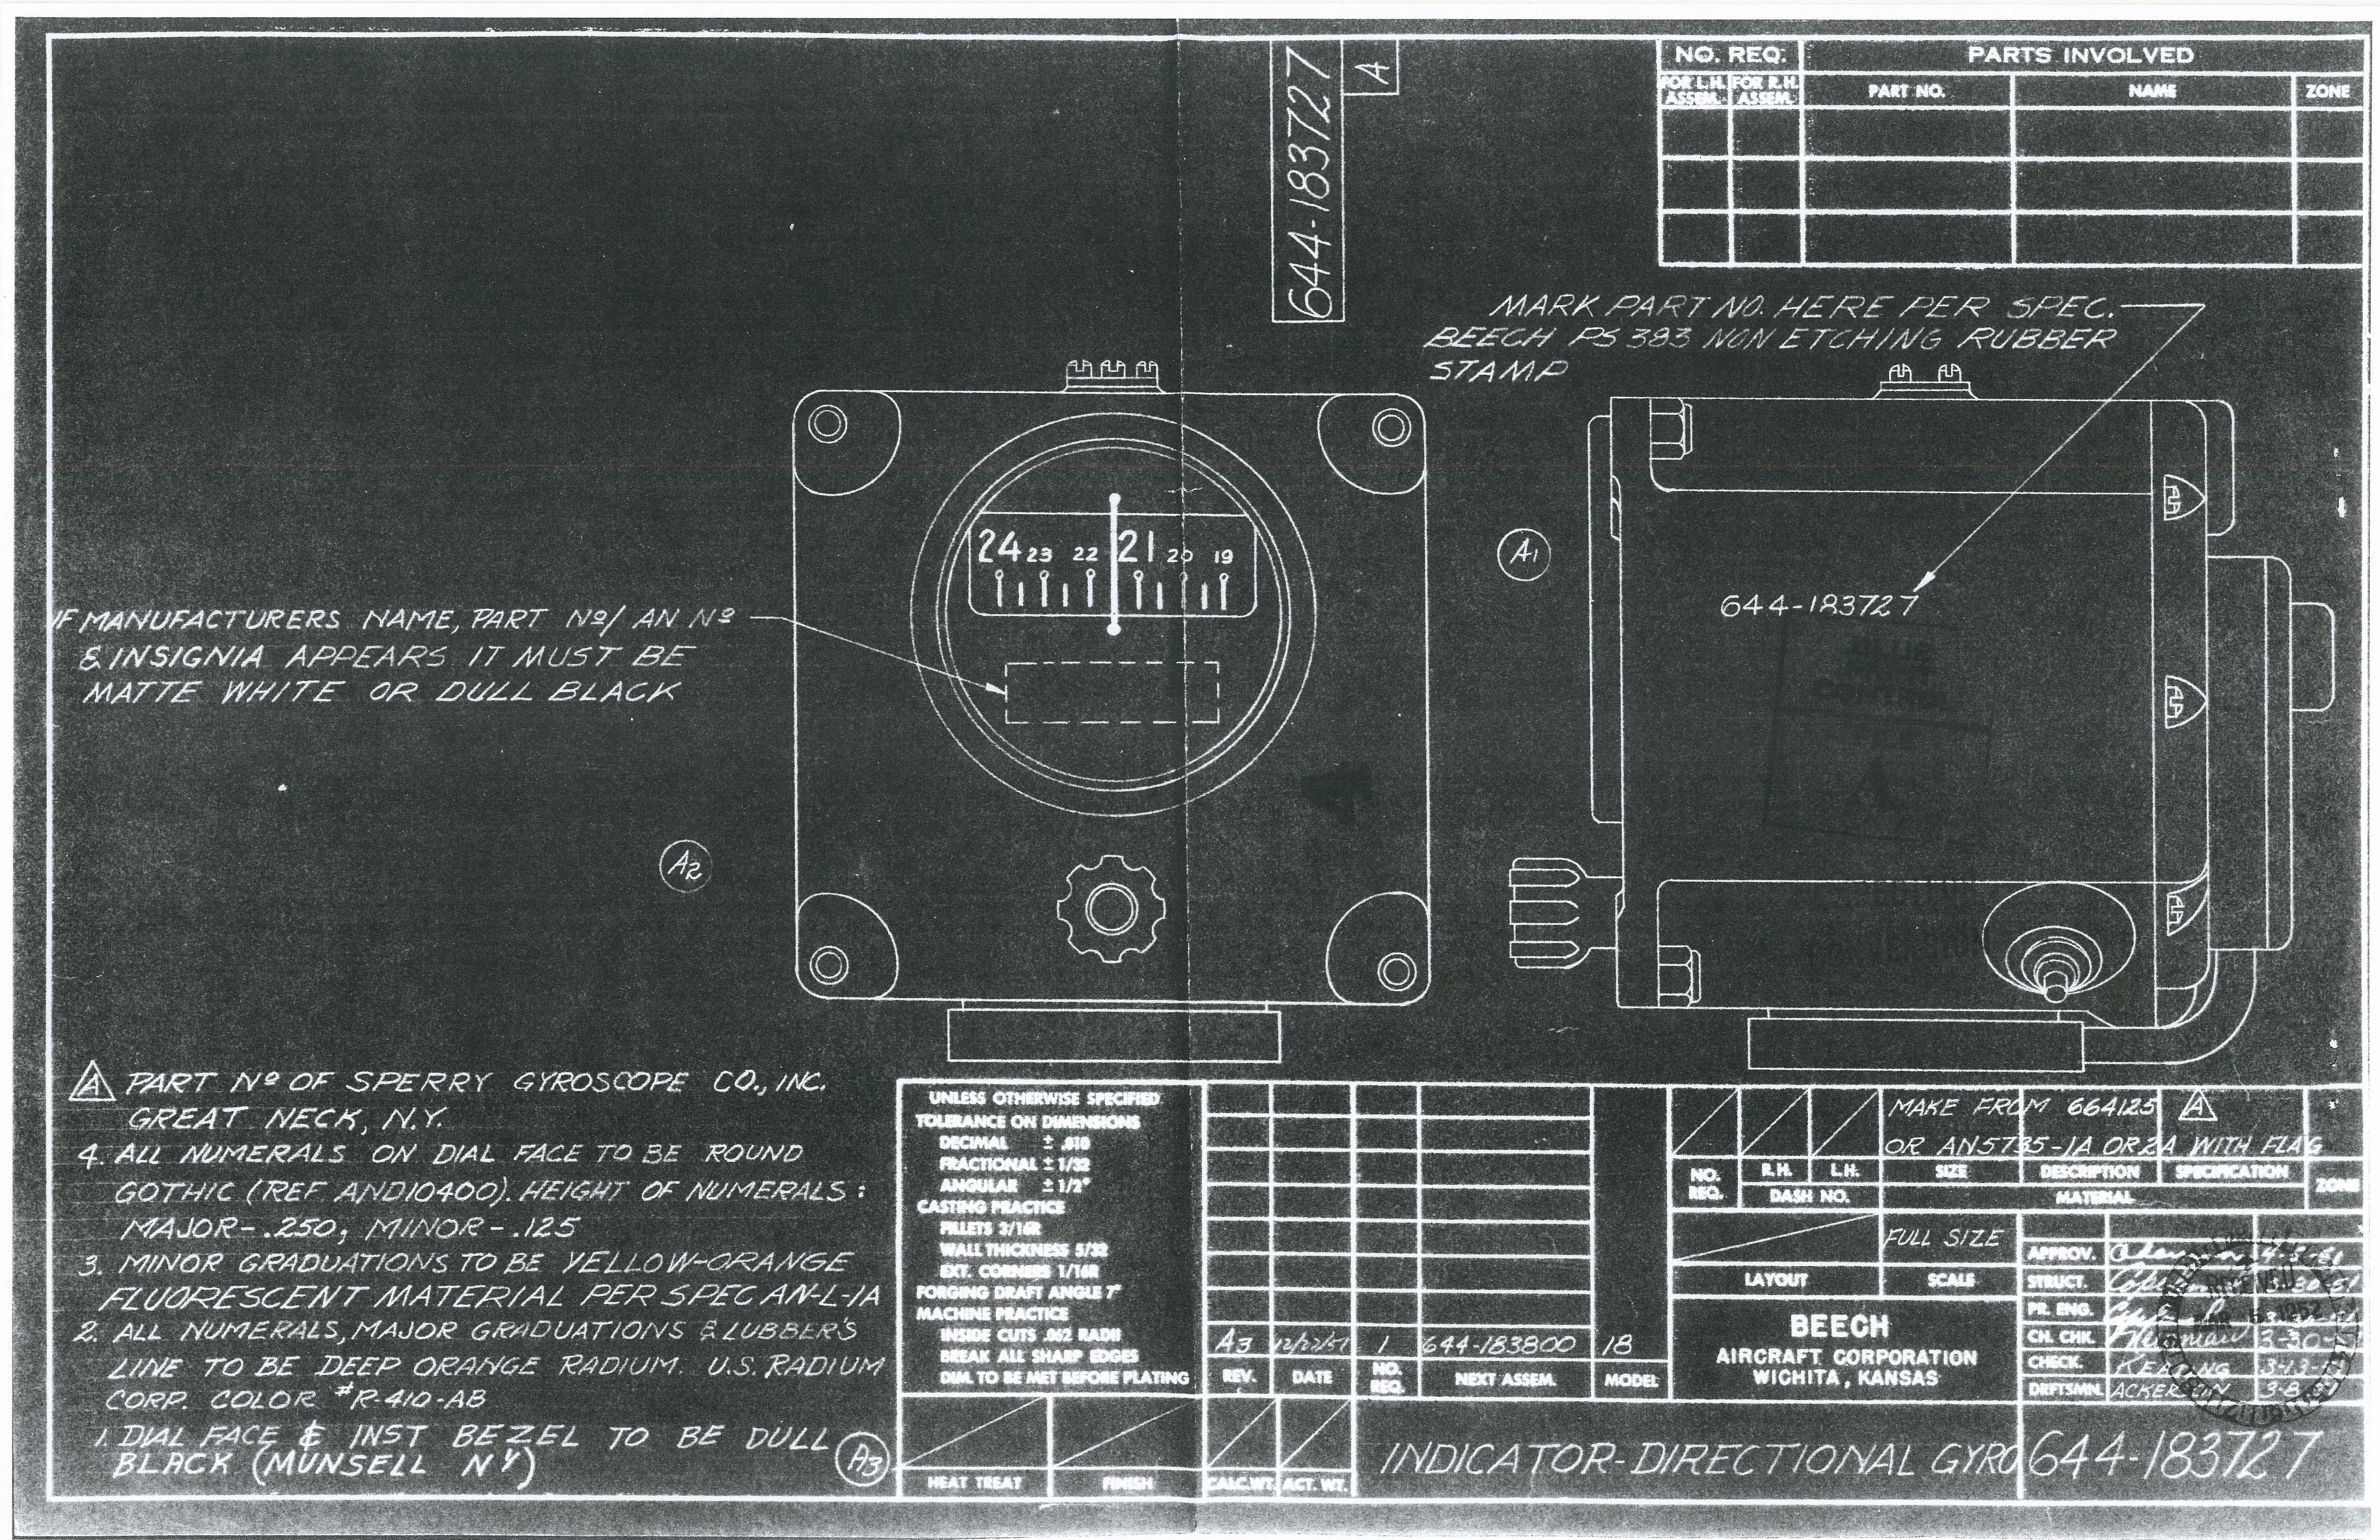 644-183727
A
NO. REQ.
PARTS INVOLVED
FOR L.H. ASSEM.
FOR R.H. ASSEM.
PART NO.
NAME
ZONE
MARK PART NO. HERE PER SPEC.
BEECH PS 383 NON ETCHING RUBBER
STAMP
24 23 22 21 20 19
A1
644-183727
IF MANUFACTURERS NAME, PART Nº/ AN Nº
& INSIGNIA APPEARS IT MUST BE
MATTE WHITE OR DULL BLACK
A2
A PART Nº OF SPERRY GYROSCOPE CO., INC.
GREAT NECK, N.Y.
4. ALL NUMERALS ON DIAL FACE TO BE ROUND
GOTHIC (REF AND10400). HEIGHT OF NUMERALS:
MAJOR-.250, MINOR-.125
3. MINOR GRADUATIONS TO BE YELLOW-ORANGE
FLUORESCENT MATERIAL PER SPEC AN-L-1A
2. ALL NUMERALS, MAJOR GRADUATIONS & LUBBER'S
LINE TO BE DEEP ORANGE RADIUM. U.S. RADIUM
CORP. COLOR #R-410-AB
1. DIAL FACE & INST BEZEL TO BE DULL
BLACK (MUNSELL NY)
A3
UNLESS OTHERWISE SPECIFIED
TOLERANCE ON DIMENSIONS
DECIMAL ± .010
FRACTIONAL ± 1/32
ANGULAR ± 1/2°
CASTING PRACTICE
FILLETS 3/16R
WALL THICKNESS 5/32
EXT. CORNERS 1/16R
FORGING DRAFT ANGLE 7°
MACHINE PRACTICE
INSIDE CUTS .062 RADII
BREAK ALL SHARP EDGES
DIM. TO BE MET BEFORE PLATING
HEAT TREAT
FINISH
CALC. WT.
ACT. WT.
A3 12/27/51 1 644-183800 18
REV. DATE NO. REQ. NEXT ASSEM. MODEL
MAKE FROM 664125 A
OR AN5735-1A OR 2A WITH FLAG
NO. REQ.
R.H. L.H.
DASH NO.
SIZE DESCRIPTION SPECIFICATION
MATERIAL
ZONE
FULL SIZE
LAYOUT
SCALE
BEECH
AIRCRAFT CORPORATION
WICHITA, KANSAS
APPROV.
STRUCT.
PR. ENG.
CH. CHK. 3-30-
CHECK. KEATING 3-13-
DRFTSMN. ACKERSON 3-8-
INDICATOR-DIRECTIONAL GYRO
644-183727